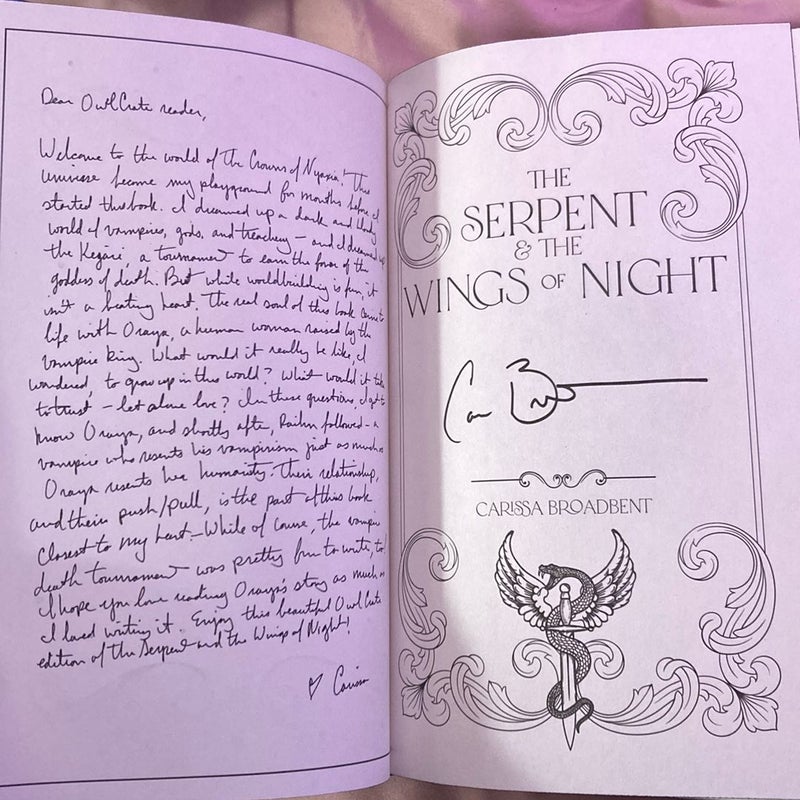 Dear OwlCrate reader,
Welcome to the world of The Crowns of Nyaxia! This
universe became my playground for months before I
started this book. I dreamed up a dark and bloody
world of vampires, gods, and treachery — and I dreamed up
the Kejari, a tournament to earn the favor of the
goddess of death. But while worldbuilding is fun, it
isn't a beating heart. The real soul of this book came to
life with Oraya, a human woman raised by the
vampire king. What would it really be like, I
wondered, to grow up in this world? What would it take
to trust — let alone love? In these questions, I got to
know Oraya, and shortly after, Raihn followed — a
vampire who resents his vampirism just as much as
Oraya resents her humanity. Their relationship,
and their push/pull, is the part of this book
closest to my heart. — While of course, the vampire
death tournament was pretty fun to write, too!
I hope you love reading Oraya's story as much as
I loved writing it. Enjoy this beautiful OwlCrate
edition of The Serpent and the Wings of Night!
♡ Carissa
THE
SERPENT
& THE
WINGS OF NIGHT
CARISSA BROADBENT